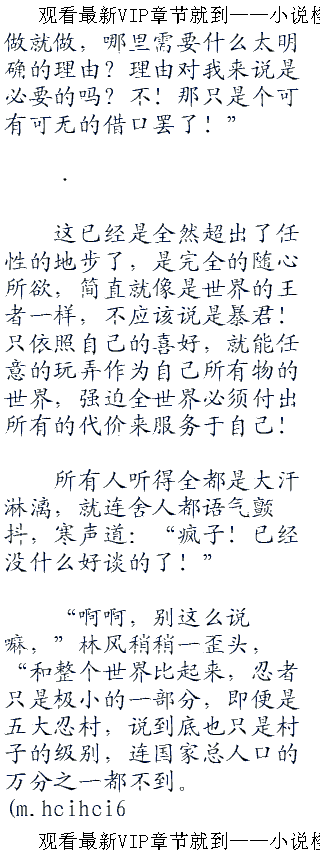 观看最新VIP章节就到——小说检
做就做，哪里需要什么太明
确的理由？理由对我来说是
必要的吗？不！那只是个可
有可无的借口罢了！”
.
这已经是全然超出了任
性的地步了，是完全的随心
所欲，简直就像是世界的王
者一样，不应该说是暴君！
只依照自己的喜好，就能任
意的玩弄作为自己所有物的
世界，强迫全世界必须付出
所有的代价来服务于自己！
所有人听得全都是大汗
淋漓，就连舍人都语气颤
抖，寒声道：“疯子！已经
没什么好谈的了！”
“啊啊，别这么说
嘛，”林风稍稍一歪头，
“和整个世界比起来，忍者
只是极小的一部分，即便是
五大忍村，说到底也只是村
子的级别，连国家总人口的
万分之一都不到。
(m.hcihci6
观看最新VIP章节就到——小说检